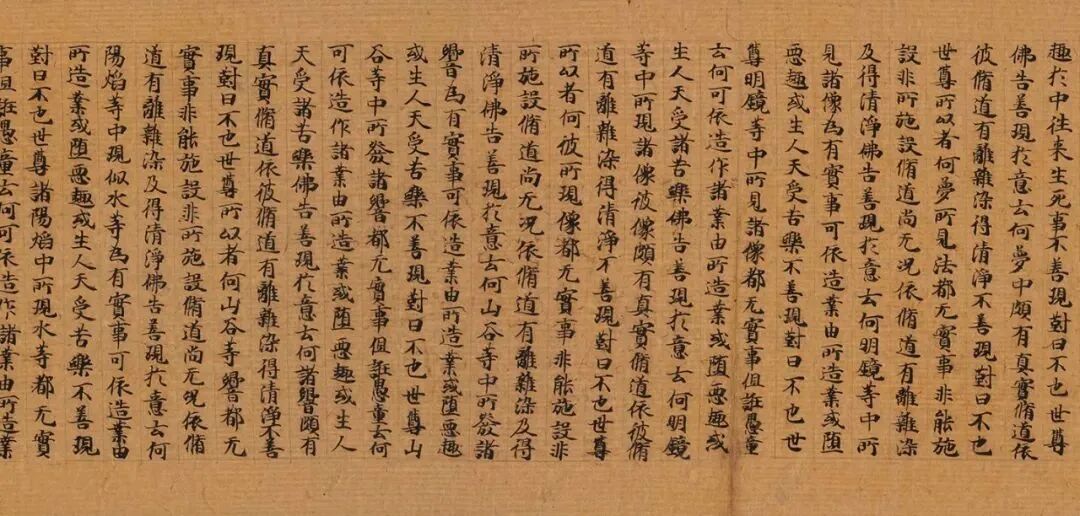 趣於中往来生死事不善現對曰不也世尊
佛告善現於意云何夢中頗有真實脩道依
彼脩道有離雜染得清淨不善現對曰不也
世尊所以者何夢所見法都无實事非能施
設非所施設脩道尚无况依脩道有離雜染
及得清淨佛告善現於意云何明鏡等中所
見諸像為有實事可依造業由所造業或堕
惡趣或生人天受苦樂不善現對曰不也世
尊明鏡等中所見諸像都无實事但誑愚童
云何可依造作諸業由所造業或堕惡趣或
生人天受諸苦樂佛告善現於意云何明鏡
等中所現諸像彼像頗有真實脩道依彼脩
道有離雜染得清淨不善現對曰不也世尊
所以者何彼所現像都无實事非能施設非
所施設脩道尚无况依脩道有離雜染及得
清淨佛告善現於意云何山谷等中所發諸
響為有實事可依造業由所造業或堕惡趣
或生人天受苦樂不善現對曰不也世尊山
谷等中所發諸響都无實事但誑愚童云何
可依造作諸業由所造業或堕惡趣或生人
天受諸苦樂佛告善現於意云何諸響頗有
真實脩道依彼脩道有離雜染得清淨不善
現對曰不也世尊所以者何山谷等響都无
實事非能施設非所施設脩道尚无况依脩
道有離雜染及得清淨佛告善現於意云何
陽焰等中現似水等為有實事可依造業由
所造業或堕惡趣或生人天受苦樂不善現
對曰不也世尊諸陽焰中所現水等都无實
事但誑愚童云何可依造作諸業由所造業